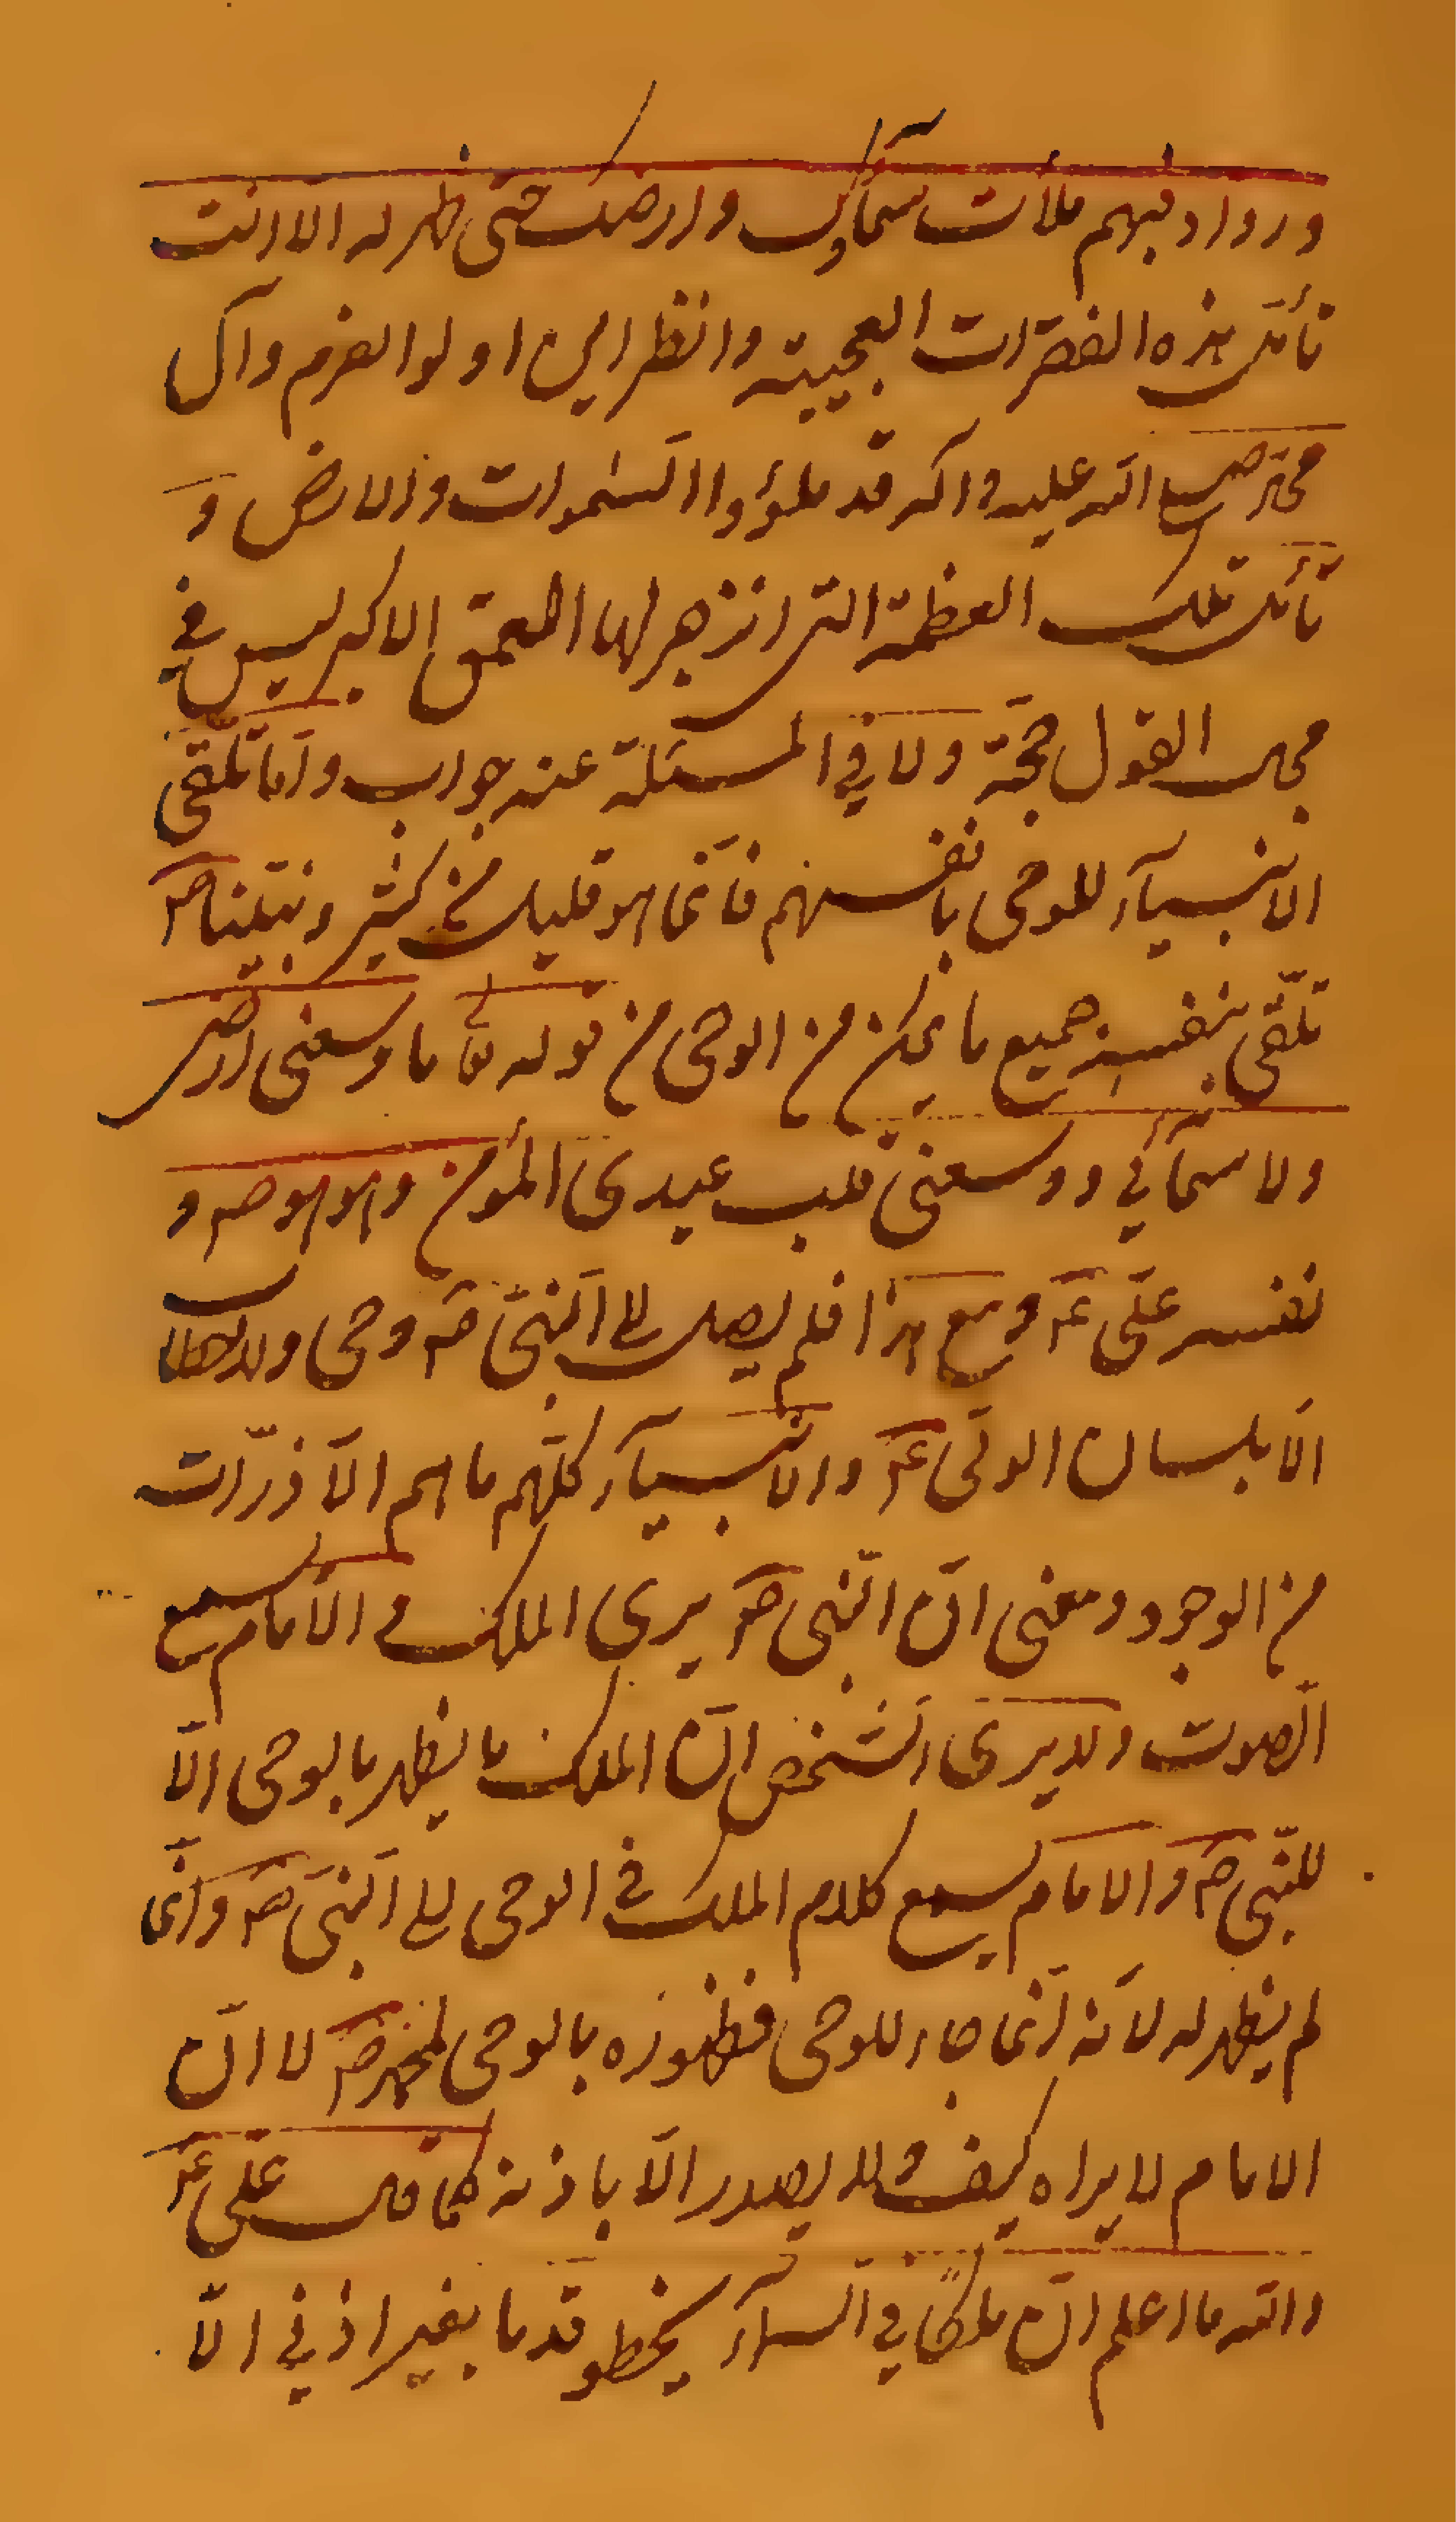 ورواد فبهم ملأت سمآؤك وارضك حتى ظهر له الا انت
تأمل هذه الفقرات العجيبة وانظر اين اولوا العزم وآل
محمد صلى الله عليه واله قد ملؤوا السموات والارض و
تأمل تلك العظمة التى انزجر لها العمق الاكبر ليس في
محال القول حجة ولا في المسئلة عنه جواب واما تلقى
الانبيآء للوحى بانفسهم فانما هو قليل من كثير ونبينا ص
تلقى بنفسه جميع ما يمكن من الوحى من قوله تع ما وسعنى ارضى
ولا سمآئي ووسعنى قلب عبدى المؤمن وهو هو ص و
نفسه على ع ومع هذا فلم يصل الى النبى ص وحى ولا خطاب
الا بلسان الولى ع والانبيآء كلهم ما هم الا ذرات
من الوجود ومعنى ان النبى ص يرى الملك والامام يسمع
الصوت ولا يرى الشخص ان الملك ما يظهر بالوحى الا
للنبى ص والامام يسمع كلام الملك في الوحى الى النبى ص وانما
لم يظهر له لانه انما جاء للوحى فظهوره بالوحى لمحمد ص لا ان
الامام لا يراه كيف ولا يصدر الا باذنه كما قال على ع
والله ما اعلم ان ملكا في السمآء يخطو قدما بغير اذني الا